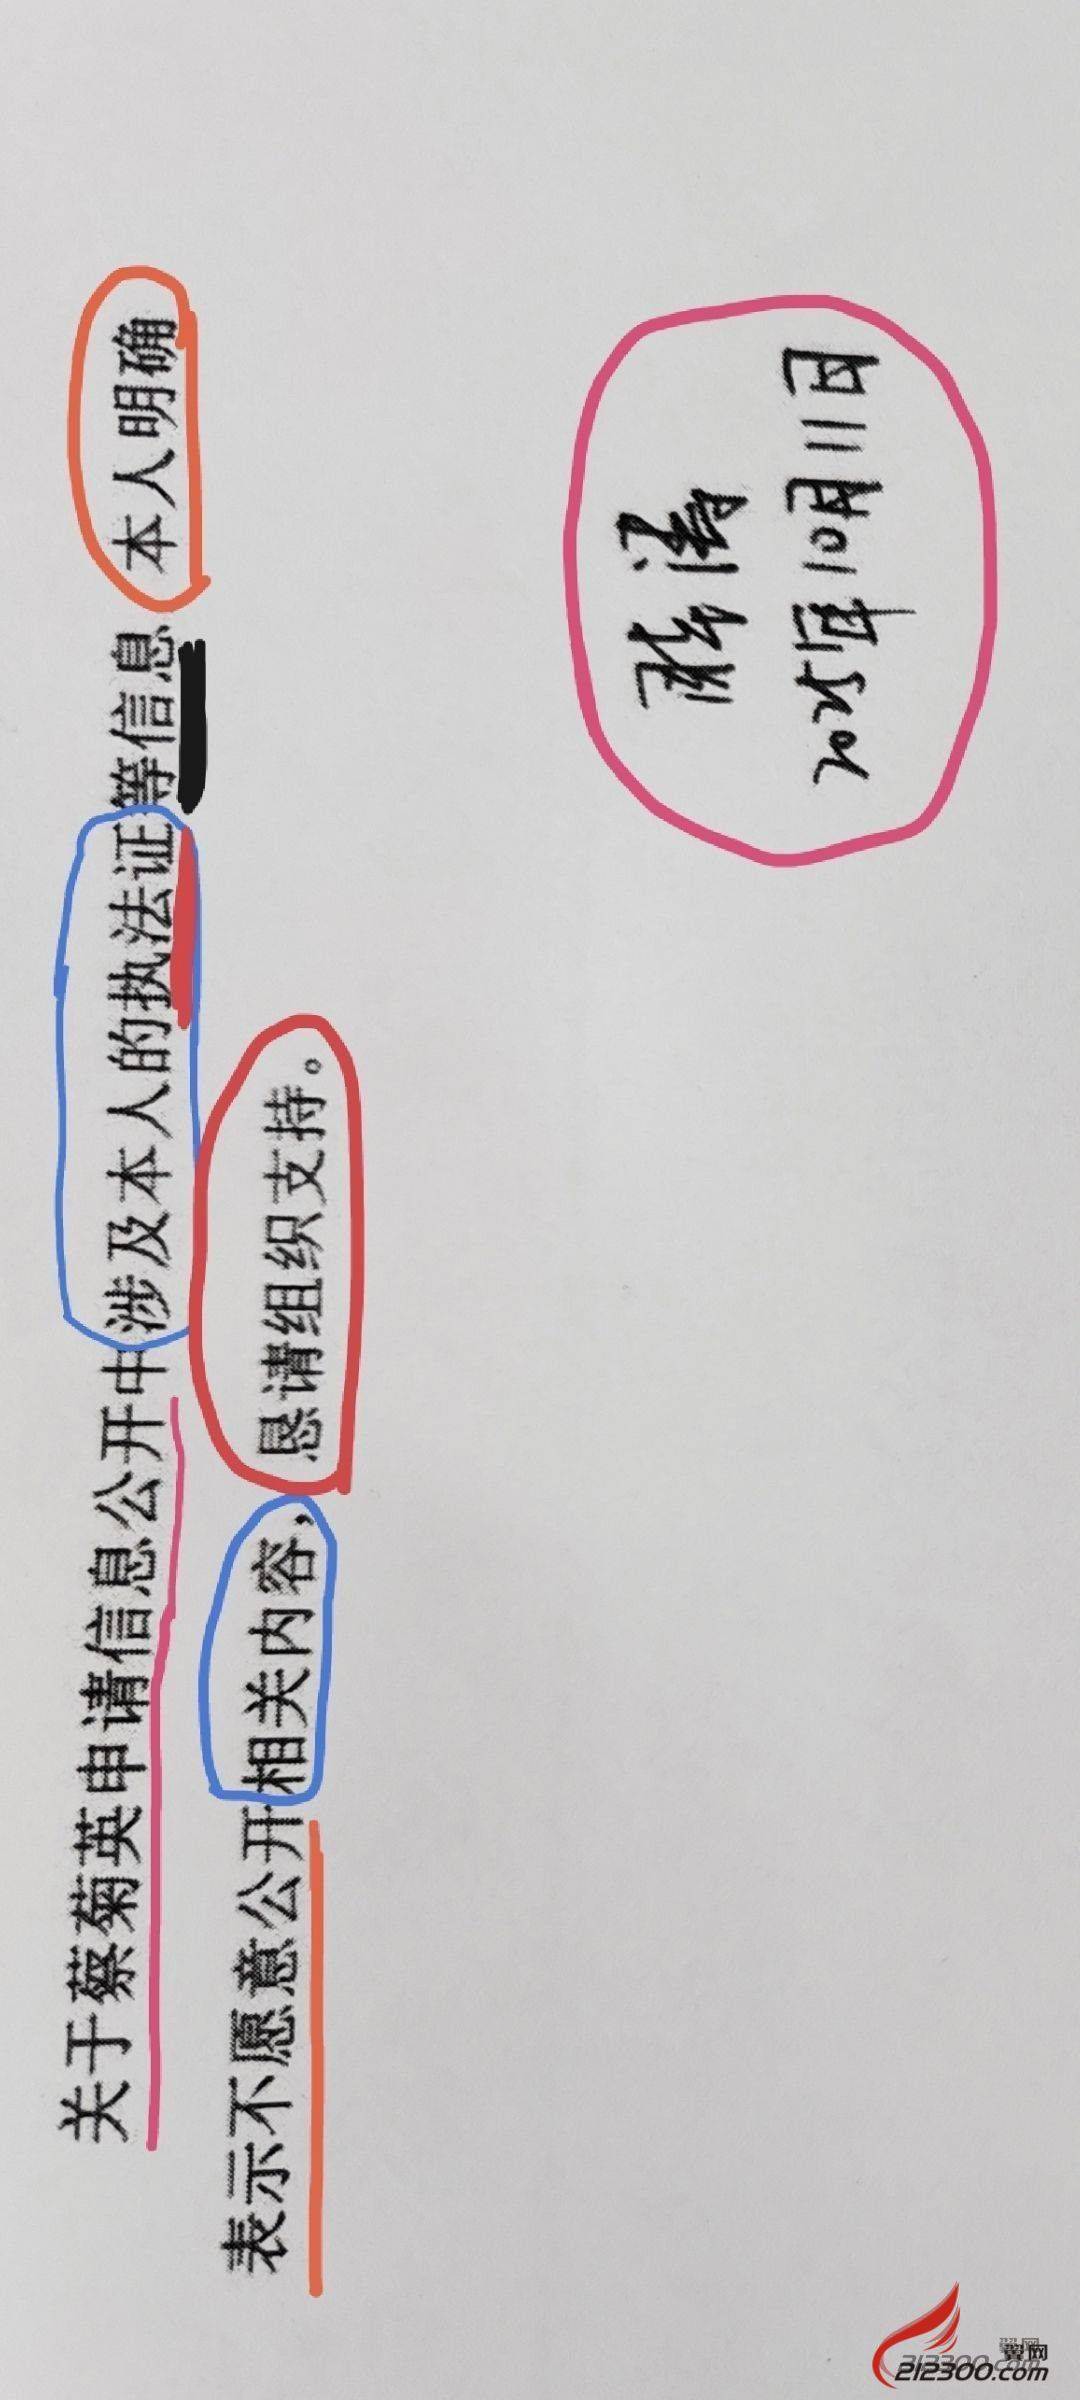 关于蔡菊英申请信息公开中涉及本人的执法证等信息 本人明确
表示不愿意公开相关内容，恳请组织支持。
2025年10月11日
翼网
212300.com